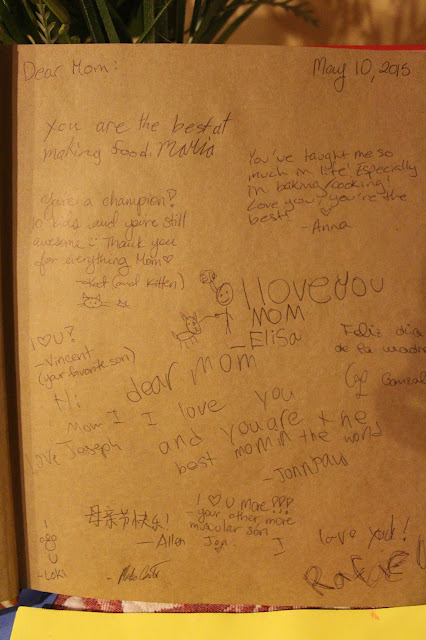 Dear Mom:
May 10, 2015
You are the best at
making food. Maria
You've taught me so
much in life! Especially
in baking/cooking!
Love you! you're the
best!
- Anna
You're a champion!
10 kids and you're still
awesome :) Thank you
for everything Mom♡
(and kitten)
I love you
MOM
- Elisa
I ♡ U!
- Vincent
(your favorite son)
Feliz dia
de la madre
Hi
Mom I
love Joseph
dear mom
I love you
and you are the
best mom in the world
- Johnpaul
母亲节快乐!
- Allen
I ♡ U More!!!
- your other more
muscular son
Jop.
I love you!
Rafae
I
U
- Loki